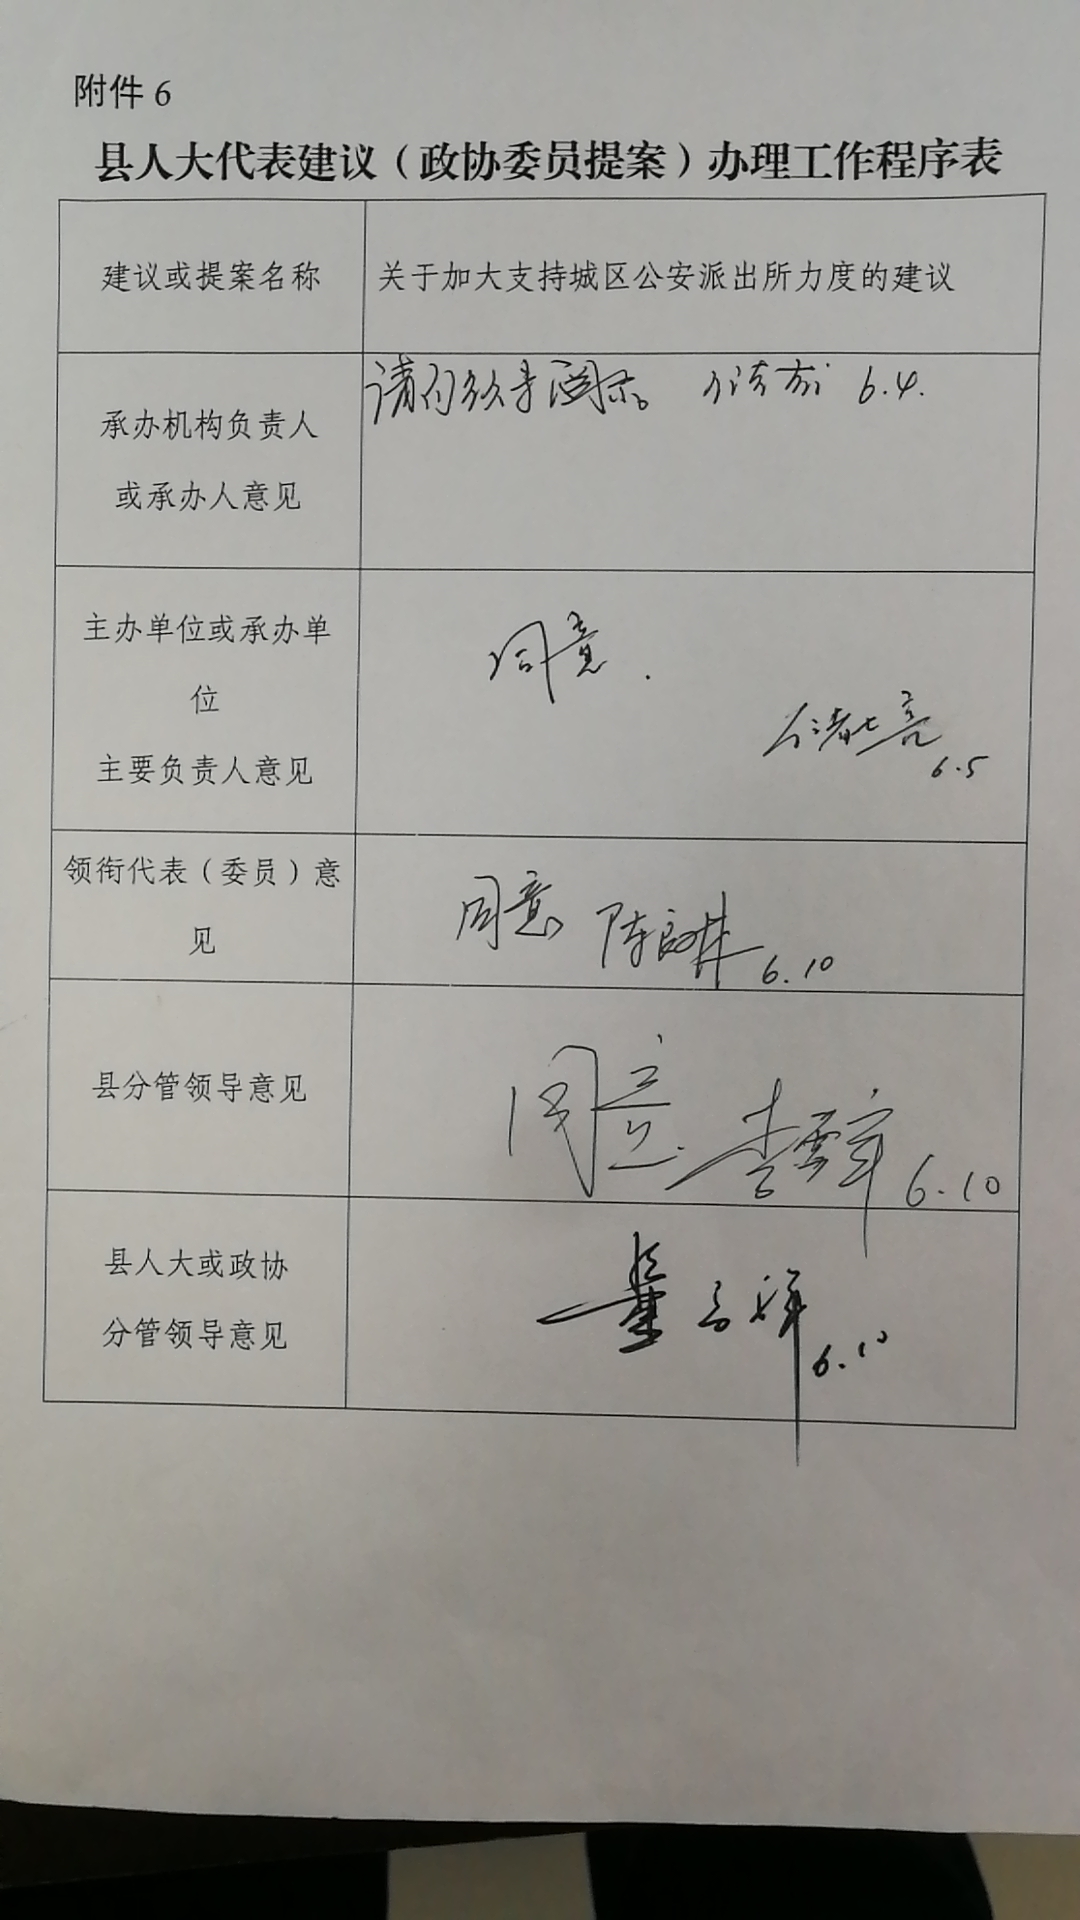 附件6
县人大代表建议（政协委员提案）办理工作程序表
建议或提案名称
关于加大支持城区公安派出所力度的建议
承办机构负责人
或承办人意见
请 阅示。 6.4.
主办单位或承办单
位
主要负责人意见
同意.
6.5
领衔代表（委员）意
见
同意 陈 6.10
县分管领导意见
同意. 李 6.10
县人大或政协
分管领导意见
6.10